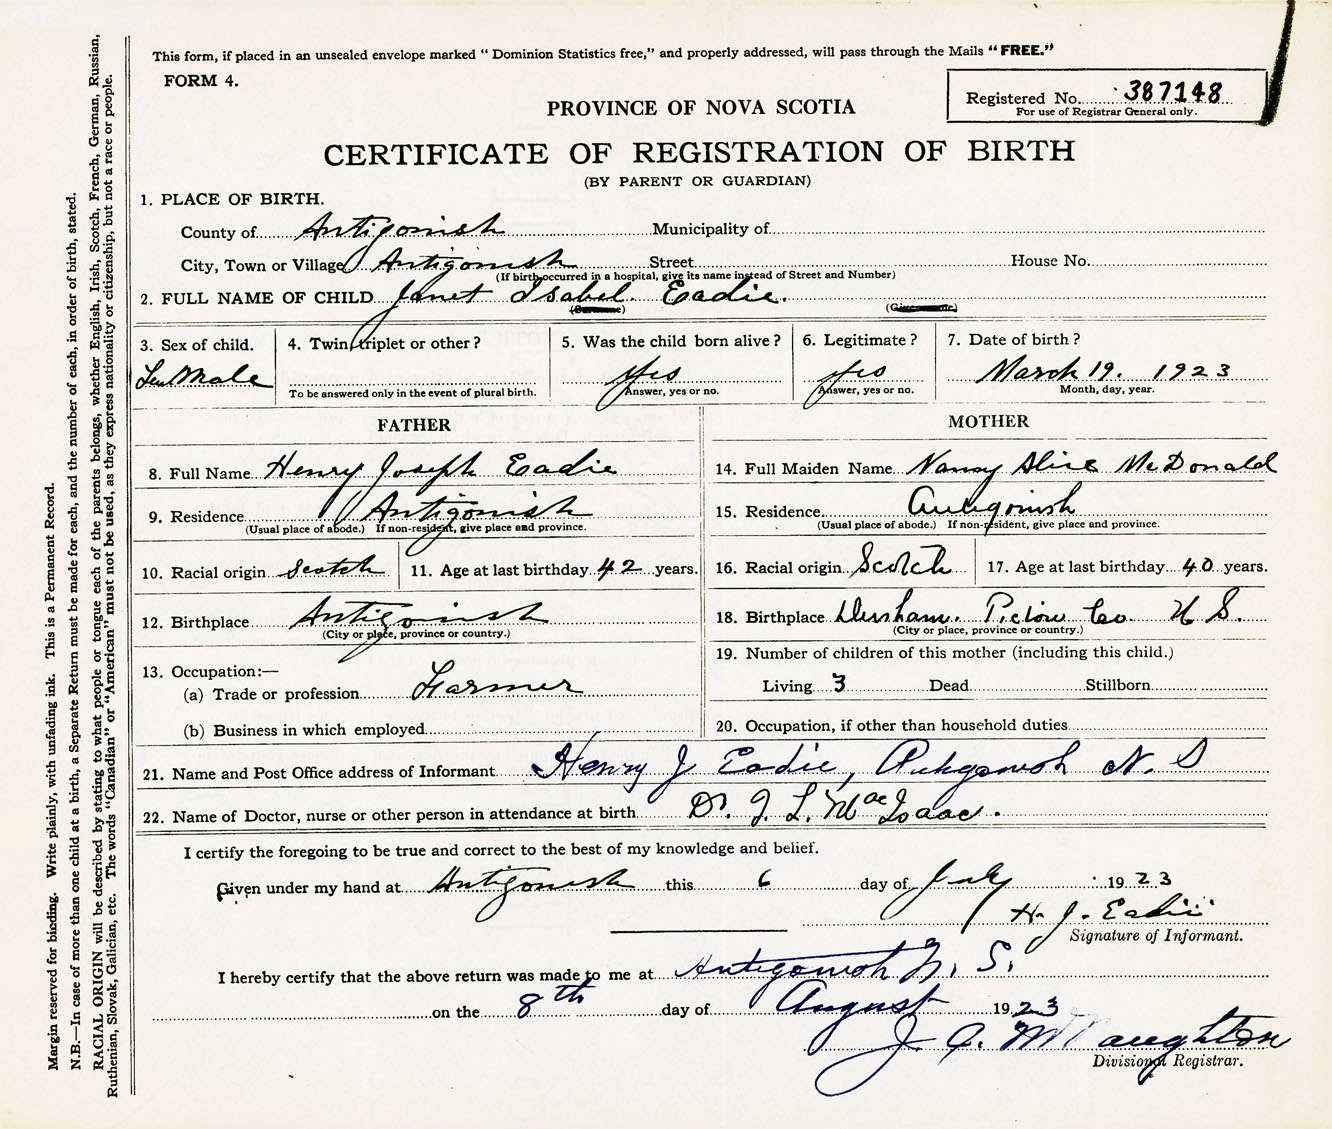 This form, if placed in an unsealed envelope marked “ Dominion Statistics free,” and properly addressed, will pass through the Mails “ FREE.”
FORM 4.
Registered No. 387148
For use of Registrar General only.
PROVINCE OF NOVA SCOTIA
CERTIFICATE OF REGISTRATION OF BIRTH
(BY PARENT OR GUARDIAN)
1. PLACE OF BIRTH.
County of Antigonish Municipality of
City, Town or Village Antigonish Street House No.
(If birth occurred in a hospital, give its name instead of Street and Number)
2. FULL NAME OF CHILD Janet Isabel. Eadie.
3. Sex of child. 4. Twin, triplet or other ? 5. Was the child born alive ? 6. Legitimate ? 7. Date of birth ?
Male Yes Yes March 19. 1923
To be answered only in the event of plural birth. Answer, yes or no. Answer, yes or no. Month, day, year.
FATHER MOTHER
8. Full Name Henry Joseph Eadie 14. Full Maiden Name Nancy Alice McDonald
9. Residence Antigonish 15. Residence. Antigonish
(Usual place of abode.) If non-resident, give place and province. (Usual place of abode.) If non-resident, give place and province.
10. Racial origin Scotch 11. Age at last birthday 42 years. 16. Racial origin Scotch 17. Age at last birthday 40 years.
12. Birthplace Antigonish 18. Birthplace Pictou Co. N S.
(City or place, province or country.) (City or place, province or country.)
13. Occupation:— 19. Number of children of this mother (including this child.)
(a) Trade or profession Farmer Living 3 Dead Stillborn
(b) Business in which employed 20. Occupation, if other than household duties
21. Name and Post Office address of Informant Henry J Eadie, Antigonish N. S
22. Name of Doctor, nurse or other person in attendance at birth Dr. J. L. MacIsaac.
I certify the foregoing to be true and correct to the best of my knowledge and belief.
Given under my hand at Antigonish this 6 day of July 1923
H. J. Eadie
Signature of Informant.
I hereby certify that the above return was made to me at Antigonish N. S.
on the 8th day of August 1923
J. A. McNaughton
Divisional Registrar.
Margin reserved for binding. Write plainly, with unfading ink. This is a Permanent Record.
N.B.—In case of more than one child at a birth, a Separate Return must be made for each, and the number of each, in order of birth, stated.
RACIAL ORIGIN will be described by stating to what people or tongue each of the parents belongs, whether English, Irish, Scotch, French, German, Russian,
Ruthenian, Slovak, Galician, etc. The words “Canadian” or “American” must not be used, as they express nationality or citizenship, but not a race or people.